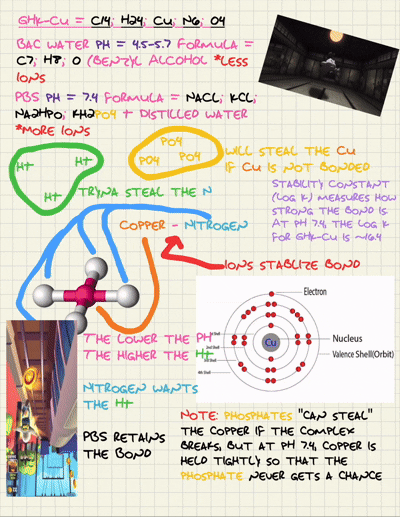 GHK-Cu = C14; H24; Cu; N6; O4
BAC WATER PH = 4.5-5.7 FORMULA =
C7; H8; O (BENZYL ALCOHOL *LESS
IONS
PBS PH = 7.4 FORMULA = NACL; KCL;
NA2HPO; KH2PO4 + DISTILLED WATER
*MORE IONS
PO4
PO4 PO4
WILL STEAL THE CU
IF CU IS NOT BONDED
H+ H+
H+
TRYNA STEAL THE N
STABILITY CONSTANT
(LOG K) MEASURES HOW
STRONG THE BOND IS
AT PH 7.4, THE LOG K
FOR GHK-CU IS ~16.4
COPPER - NITROGEN
IONS STABLIZE BOND
Electron
1st Shell
2nd Shell
3rd Shell
4th Shell
Cu
Nucleus
Valence Shell(Orbit)
THE LOWER THE PH
THE HIGHER THE H+
NITROGEN WANTS
THE H+
PBS RETAINS
THE BOND
NOTE: PHOSPHATES "CAN STEAL"
THE COPPER IF THE COMPLEX
BREAKS, BUT AT PH 7.4, COPPER IS
HELD TIGHTLY SO THAT THE
PHOSPHATE NEVER GETS A CHANCE